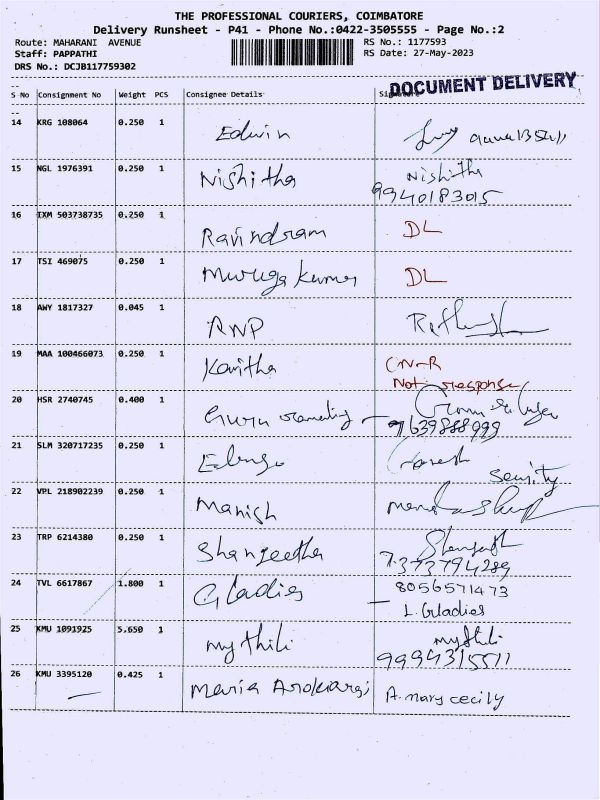 THE PROFESSIONAL COURIERS, COIMBATORE
Delivery Runsheet - P41 - Phone No.:0422-3505555 - Page No.:2
Route: MAHARANI AVENUE RS No.: 1177593
Staff: PAPPATHI RS Date: 27-May-2023
DRS No.: DCJB117759302
DOCUMENT DELIVERY
S No Consignment No Weight PCS Consignee Details
14 KRG 108064 0.250 1 Edwin
15 NGL 1976391 0.250 1 Nishitha Nishitha
9940183015
16 IXM 503738735 0.250 1 Ravindram DL
17 TSI 469075 0.250 1 Muruga Kumar DL
18 AWY 1817327 0.045 1 ANP
19 MAA 100466073 0.250 1 Kavitha CN-R
Not response
20 HSR 2740745 0.400 1 Guru
9639888999
21 SLM 320717235 0.250 1
22 VPL 218902239 0.250 1 Manish
23 TRP 6214380 0.250 1 Shangeetha
7373794289
24 TVL 6617867 1.800 1 Gladies 8056571473
L. Gladies
25 KMU 1091925 5.650 1 mythili mythili
9994315511
26 KMU 3395120 0.425 1 Maria Arokiaraj A. mary cecily